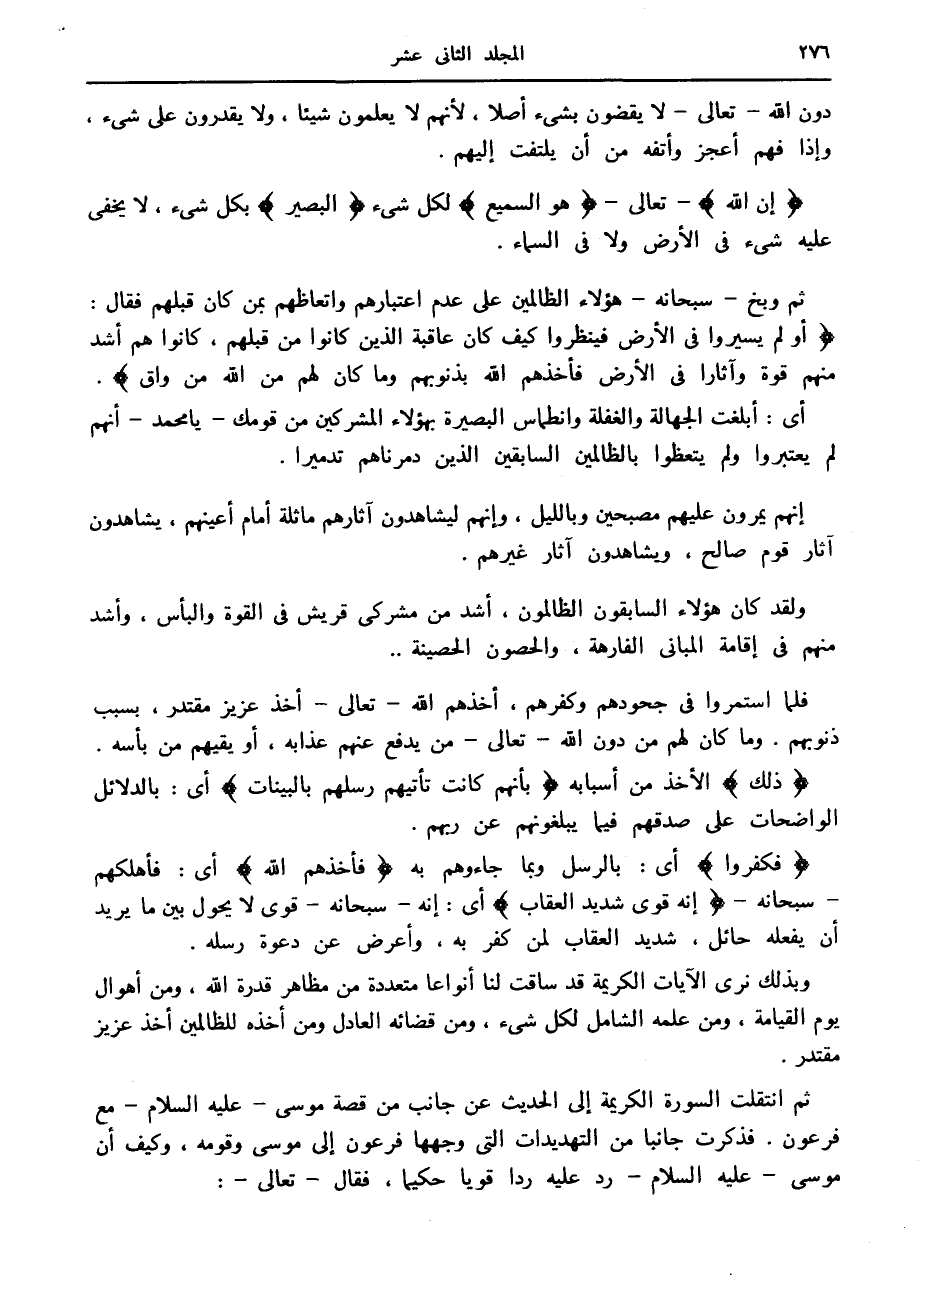 ٢٧٦ المجلد الثانى عشر
دون الله – تعالى – لا يقضون بشىء أصلا ، لأنهم لا يعلمون شيئا ، ولا يقدرون على شىء ،
وإذا فهم أعجز وأتفه من أن يلتفت إليهم .
﴿ إن الله ﴾ – تعالى – ﴿ هو السميع ﴾ لكل شىء ﴿ البصير ﴾ بكل شىء ، لا يخفى
عليه شىء فى الأرض ولا فى السماء .
ثم وبخ – سبحانه – هؤلاء الظالمين على عدم اعتبارهم واتعاظهم بمن كان قبلهم فقال :
﴿ أو لم يسيروا فى الأرض فينظروا كيف كان عاقبة الذين كانوا من قبلهم ، كانوا هم أشد
منهم قوة وآثارا فى الأرض فأخذهم الله بذنوبهم وما كان لهم من الله من واق ﴾ .
أى : أبلغت الجهالة والغفلة وانطماس البصيرة بهؤلاء المشركين من قومك – يامحمد – أنهم
لم يعتبروا ولم يتعظوا بالظالمين السابقين الذين دمرناهم تدميرا .
إنهم يمرون عليهم مصبحين وبالليل ، وإنهم ليشاهدون آثارهم ماثلة أمام أعينهم ، يشاهدون
آثار قوم صالح ، ويشاهدون آثار غيرهم .
ولقد كان هؤلاء السابقون الظالمون ، أشد من مشركى قريش فى القوة والبأس ، وأشد
منهم فى إقامة المبانى الفارهة ، والحصون الحصينة ..
فلما استمروا فى جحودهم وكفرهم ، أخذهم الله – تعالى – أخذ عزيز مقتدر ، بسبب
ذنوبهم . وما كان لهم من دون الله – تعالى – من يدفع عنهم عذابه ، أو يقيهم من بأسه .
﴿ ذلك ﴾ الأخذ من أسبابه ﴿ بأنهم كانت تأتيهم رسلهم بالبينات ﴾ أى : بالدلائل
الواضحات على صدقهم فيما يبلغونهم عن ربهم .
﴿ فكفروا ﴾ أى : بالرسل وبما جاءوهم به ﴿ فأخذهم الله ﴾ أى : فأهلكهم
– سبحانه – ﴿ إنه قوى شديد العقاب ﴾ أى : إنه – سبحانه – قوى لا يحول بين ما يريد
أن يفعله حائل ، شديد العقاب لمن كفر به ، وأعرض عن دعوة رسله .
وبذلك نرى الآيات الكريمة قد ساقت لنا أنواعا متعددة من مظاهر قدرة الله ، ومن أهوال
يوم القيامة ، ومن علمه الشامل لكل شىء ، ومن قضائه العادل ومن أخذه للظالمين أخذ عزيز
مقتدر .
ثم انتقلت السورة الكريمة إلى الحديث عن جانب من قصة موسى – عليه السلام – مع
فرعون . فذكرت جانبا من التهديدات التى وجهها فرعون إلى موسى وقومه ، وكيف أن
موسى – عليه السلام – رد عليه ردا قويا حكيما ، فقال – تعالى – :